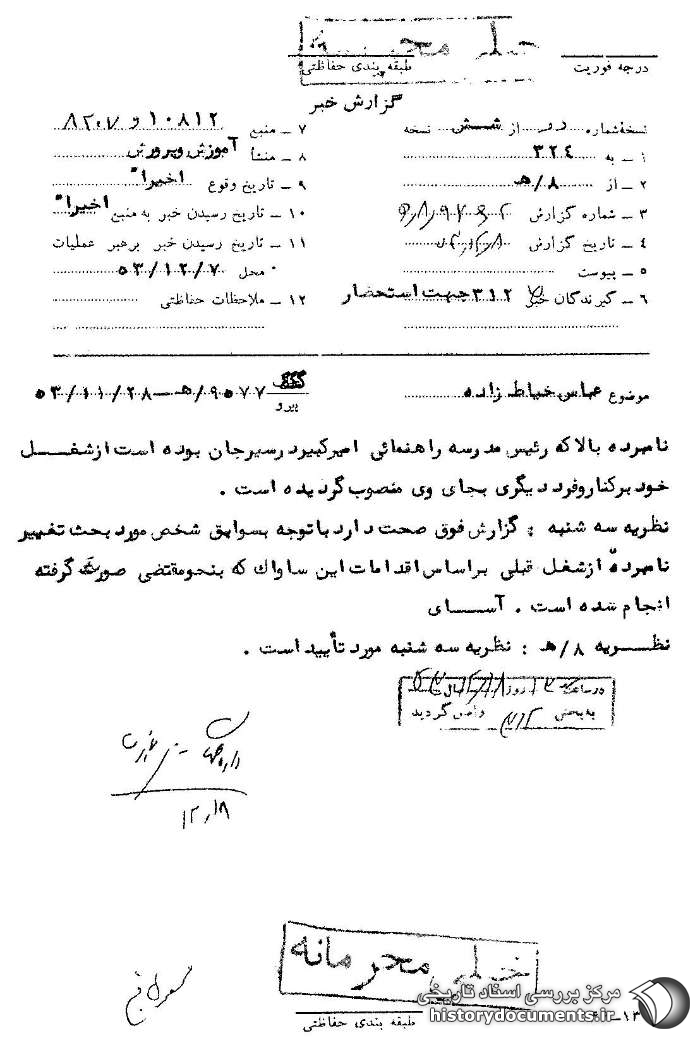 خیلی محرمانه
درجه فوریت
طبقه بندی حفاظتی
گزارش خبر
نسخه شماره دو از شش نسخه
۱ – به ۳۲۴
۲ – از ۸/هـ
۳ – شماره گزارش
۴ – تاریخ گزارش
۵ – پیوست
۶ – گیرندگان خبر ۳۱۲ جهت استحضار
۷ – منبع ۱۰۸۱۲ و ۸۲۰۷
۸ – منشأ آموزش و پرورش
۹ – تاریخ وقوع اخیراً
۱۰ – تاریخ رسیدن خبر به منبع اخیراً
۱۱ – تاریخ رسیدن خبر برهبر عملیات
محل ۵۳/۱۲/۷
۱۲ – ملاحظات حفاظتی
موضوع عباس خیاط زاده
پیرو ۹۵۷۷/هـ – ۵۳/۱۱/۲۸
نامبرده بالا که رئیس مدرسه راهنمائی امیرکبیر در سیرجان بوده است از شغل
خود برکنار و فرد دیگری بجای وی منصوب گردیده است .
نظریه سه شنبه : گزارش فوق صحت دارد با توجه بسوابق شخص مورد بحث تغییر
نامبرده از شغل قبلی براساس اقدامات این ساواك که بنحو مقتضی صورت گرفته
انجام شده است . آسای
نظریه ۸/هـ : نظریه سه شنبه مورد تأیید است .
در ساعت روز
به بخش ۳۱۲ واصل گردید
۱۲/۱۸
خیلی محرمانه
طبقه بندی حفاظتی
مرکز بررسی اسناد تاریخی
historydocuments.ir